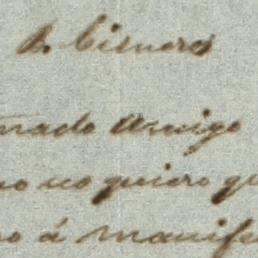 B. Cisneros
mado Amigo
no no quiero qu
o á manife